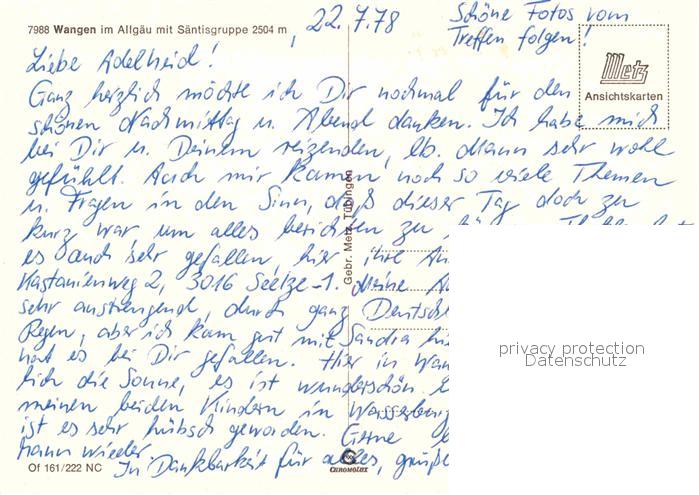 7988 Wangen im Allgäu mit Säntisgruppe 2504 m
22.7.78
Schöne Fotos vom
Treffen folgen!
Metz
Ansichtskarten
Liebe Adelheid!
Ganz herzlich möchte ich Dir nochmal für den
schönen Nachmittag u. Abend danken. Ich habe mich
bei Dir u. Deinem reizenden, lb. Mann sehr wohl
gefühlt. Auch mir kamen noch so viele Themen
u. Fragen in den Sinn, daß dieser Tag doch zu
kurz war um alles berichten zu
es auch sehr gefallen, hier ihre
Kastanienweg 2, 3016 Seelze-1. Meine
sehr anstrengend, durch ganz Deutschl
Regen, aber ich kam gut mit Sandra
hat es bei Dir gefallen. Hier in Wan
lich die Sonne, es ist wunderschön.
meinen beiden Kindern in Wasserburg
ist es sehr hübsch geworden. Gerne
mann wieder.
In Dankbarkeit für alles, grüße
Gebr. Metz, Tübingen
Of 161/222 NC
CHROMOLUX
privacy protection
Datenschutz